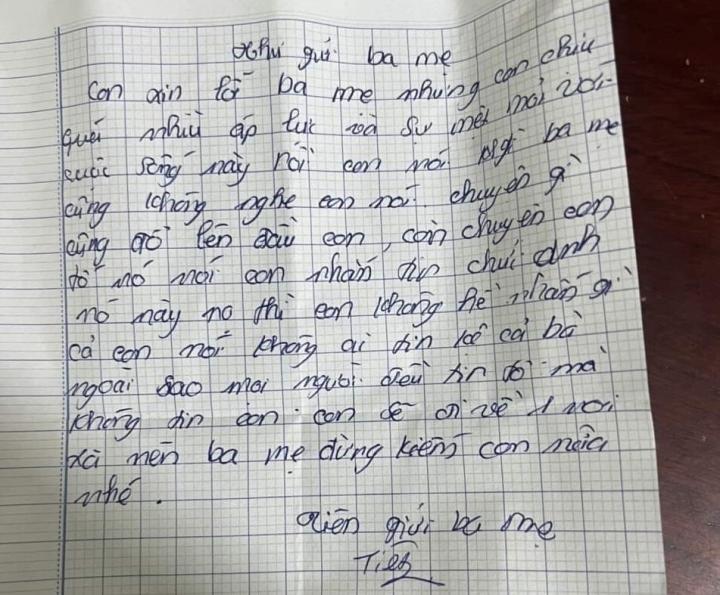 Thư gửi ba mẹ
Con xin lỗi ba mẹ nhưng con chịu
quá nhiều áp lực và sự mệt mỏi với
cuộc sống này nói con nói gì ba mẹ
cũng không nghe con nói. chuyện gì
cũng đổ lên đầu con, còn chuyện con
nó nói con nhắn tin chửi
nó này nọ thì con không hề nhắn gì
cả con nói không ai tin kể cả bà
ngoại sao mọi người đều tin mà
không tin con. con sẽ đi về 1 nơi
xa nên ba mẹ đừng kiếm con nữa
nhé.
gửi ba mẹ